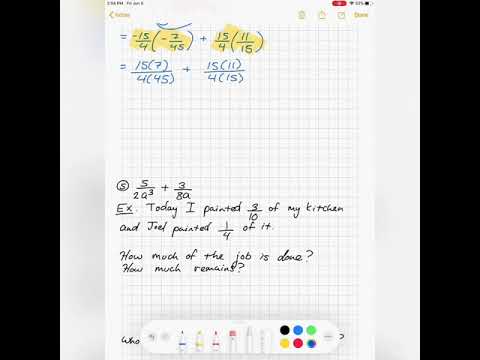 2:56 PM Fri Jun 5
53%
Notes
Done
= -15/4 (-7/45) + 15/4 (11/15)
= 15(7)/4(45) + 15(11)/4(15)
⑤ 5/2a³ + 3/8a
Ex. Today I painted 3/10 of my kitchen
and Joel painted 1/4 of it.
How much of the job is done?
How much remains?
Who ?